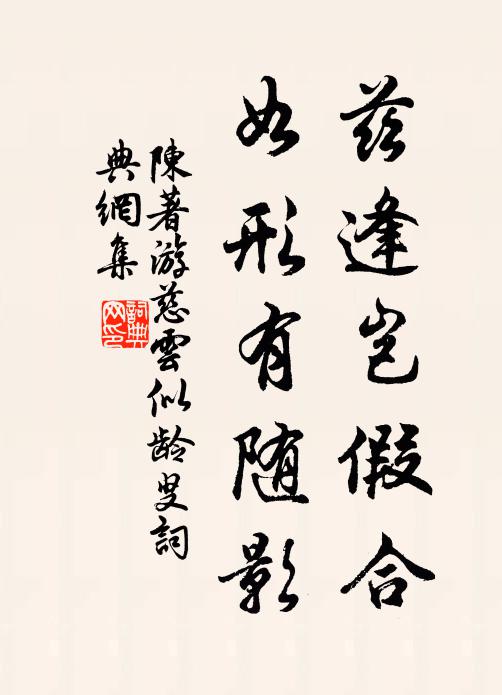 茲逢岂假合
如形有随影
陳著游慈雲似龄叟詞
典網集
詞典
网印